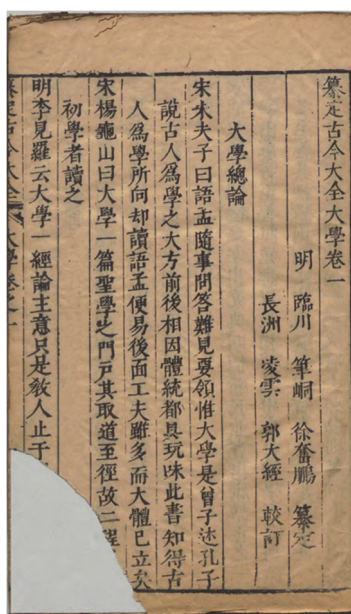 纂定古今大全大學卷一
明 臨川 筆峒 徐奮鵬 纂定
長洲 凌雲 郭大經 較訂
大學總論
宋朱夫子曰語孟隨事問答難見要領惟大學是曾子述孔子
說古人為學之大方前後相因體統都具玩味此書知得古
人爲學所向却讀語孟便易後面工夫雖多而大體已立矣
宋楊龜山曰大學一篇聖學之門戶其取道至徑故二程
初學者讀之
明李見羅云大學一經論主意只是教人止于
纂定古今大全 大學卷之一